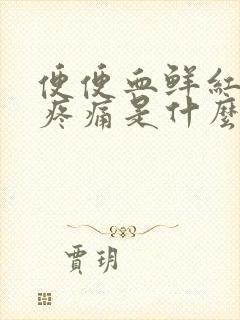 便便血鲜红
疼痛是什麼
賈玥